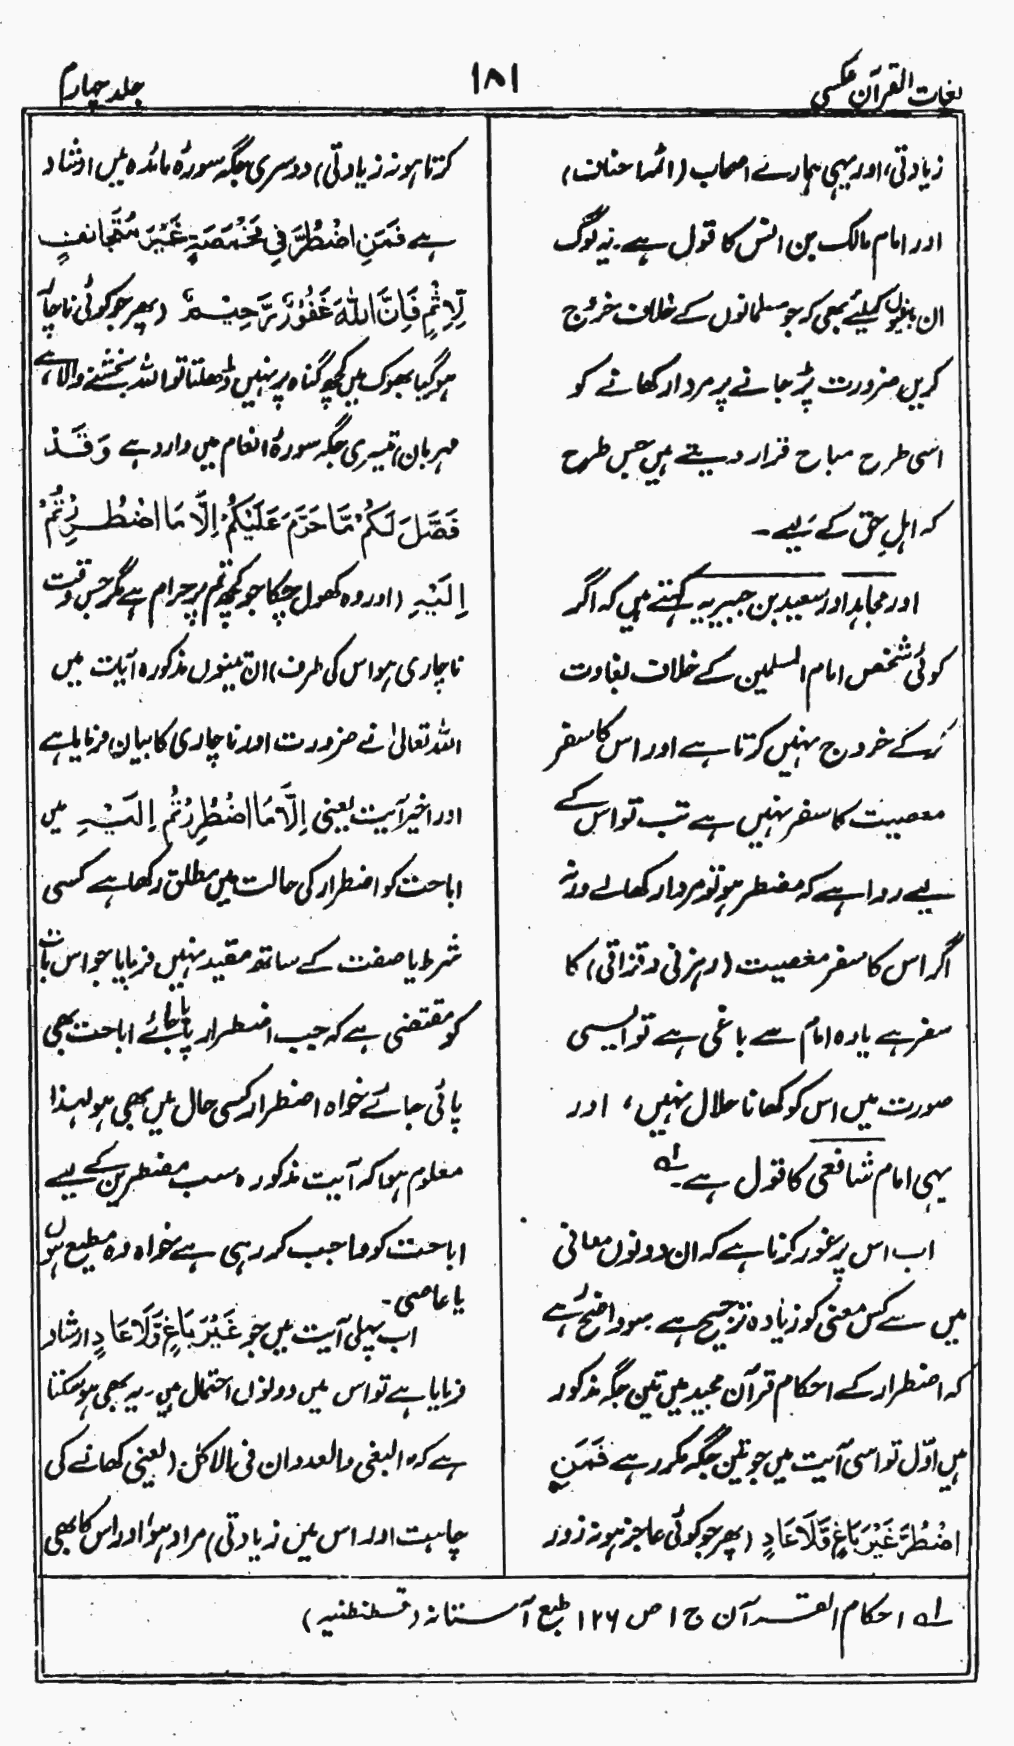 لغات القرآن عکسی
۱۸۱
جلد چہارم
زیادتی، اور یہی ہمارے اصحاب (ائمۂ احناف)
اور امام مالک بن انس کا قول ہے۔ یہ لوگ
ان باغیوں کیلئے بھی کہ جو مسلمانوں کے خلاف خروج
کریں ضرورت پڑ جانے پر مردار کھانے کو
اسی طرح مباح قرار دیتے ہیں جس طرح
کہ اہلِ حق کے لیے۔
اور مجاہد اور سعید بن جبیر یہ کہتے ہیں کہ اگر
کوئی شخص امام المسلمین کے خلاف بغاوت
کر کے خروج نہیں کرتا ہے اور اس کا سفر
معصیت کا سفر نہیں ہے تب تو اس کے
لیے روا ہے کہ مضطر ہو تو مردار کھالے ورنہ
اگر اس کا سفر معصیت (رہزنی و قزاقی) کا
سفر ہے یا وہ امام سے باغی ہے تو ایسی
صورت میں اس کو کھانا حلال نہیں، اور
یہی امام شافعی کا قول ہے۔ لہ
اب اس پر غور کرنا ہے کہ ان دونوں معانی
میں سے کس معنی کو زیادہ ترجیح ہے سو واضح رہے
کہ اضطرار کے احکام قرآن مجید میں تین جگہ مذکور
ہیں اوّل تو اسی آیت میں جو تین جگہ مکرر ہے فَمَنِ
اضْطُرَّ غَيْرَ بَاغٍ وَّلَا عَادٍ (پھر جو کوئی عاجز ہو نہ زور
کرتا ہو نہ زیادتی) دوسری جگہ سورۂ مائدہ میں ارشاد
ہے فَمَنِ اضْطُرَّ فِي مَخْمَصَةٍ غَيْرَ مُتَجَانِفٍ
لِّاِثْمٍ فَاِنَّ اللّٰهَ غَفُوْرٌ رَّحِيْمٌ (پھر جو کوئی ناچار
ہوگیا بھوک میں کچھ گناہ پر نہیں ڈھلتا تو اللہ بخشنے والا ہے،
مہربان) تیسری جگہ سورۂ انعام میں وارد ہے وَقَدْ
فَصَّلَ لَكُمْ مَّا حَرَّمَ عَلَيْكُمْ اِلَّا مَا اضْطُرِرْتُمْ
اِلَيْهِ (اور وہ کھول چکا جو کچھ تم پر حرام ہے مگر جس وقت
ناچاری ہو اس کی طرف) ان تینوں مذکورہ آیات میں
اللہ تعالیٰ نے ضرورت اور ناچاری کا بیان فرمایا ہے
اور اخیر آیت یعنی اِلَّا مَا اضْطُرِرْتُمْ اِلَيْهِ میں
اباحت کو اضطرار کی حالت میں مطلق رکھا ہے کسی
شرط یا صفت کے ساتھ مقید نہیں فرمایا جو اس بات
کو مقتضی ہے کہ جب اضطرار پایا جائے اباحت بھی
پائی جائے خواہ اضطرار کسی حال میں بھی ہو لہذا
معلوم ہوا کہ آیت مذکورہ سب مضطرین کے لیے
اباحت کو واجب کر رہی ہے خواہ وہ مطیع ہوں
یا عاصی۔
اب پہلی آیت میں جو غَيْرَ بَاغٍ وَّلَا عَادٍ ارشاد
فرمایا ہے تو اس میں دونوں احتمال ہیں۔ یہ بھی ہو سکتا
ہے کہ البغی والعدوان فی الاکل (یعنی کھانے کی
چاہت اور اس میں زیادتی) مراد ہو، اور اس کا بھی
لہ احکام القرآن ج ۱ ص ۱۲۶ طبع آستانہ (قسطنطنیہ)